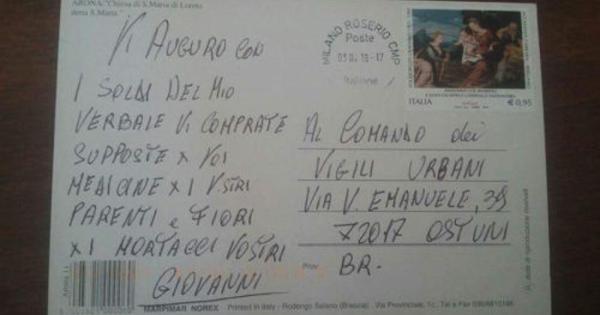 ARONA: "Chiesa di S. Maria di Loreto
detta S. Maria."
VI AUGURO CON
I SOLDI DEL MIO
VERBALE VI COMPRATE
SUPPOSTE x VOI
MEDICINE x I VSTRI
PARENTI e FIORI
x I MORTACCI VOSTRI
GIOVANNI
MILANO ROSERIO CMP
Poste
Italiane
ITALIA
€ 0,95
AL COMANDO dei
VIGILI URBANI
VIA V. EMANUELE, 39
72017 OSTUNI
BR.
MARPIMAR NOREX - Printed in Italy - Rodengo Saiano (Brescia) - Via Provinciale, 1c, Tel e Fax